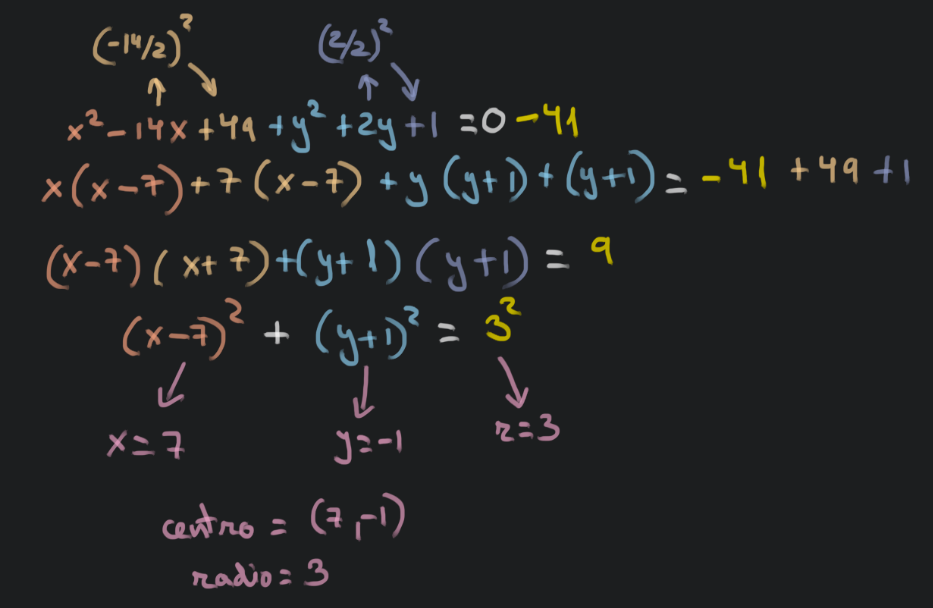 (-14/2)² (2/2)²
x² - 14x + 49 + y² + 2y + 1 = 0 - 41
x(x-7) + 7(x-7) + y(y+1) + (y+1) = -41 + 49 + 1
(x-7)(x+7) + (y+1)(y+1) = 9
(x-7)² + (y+1)² = 3²
x=7 y=-1 r=3
centro = (7,-1)
radio = 3